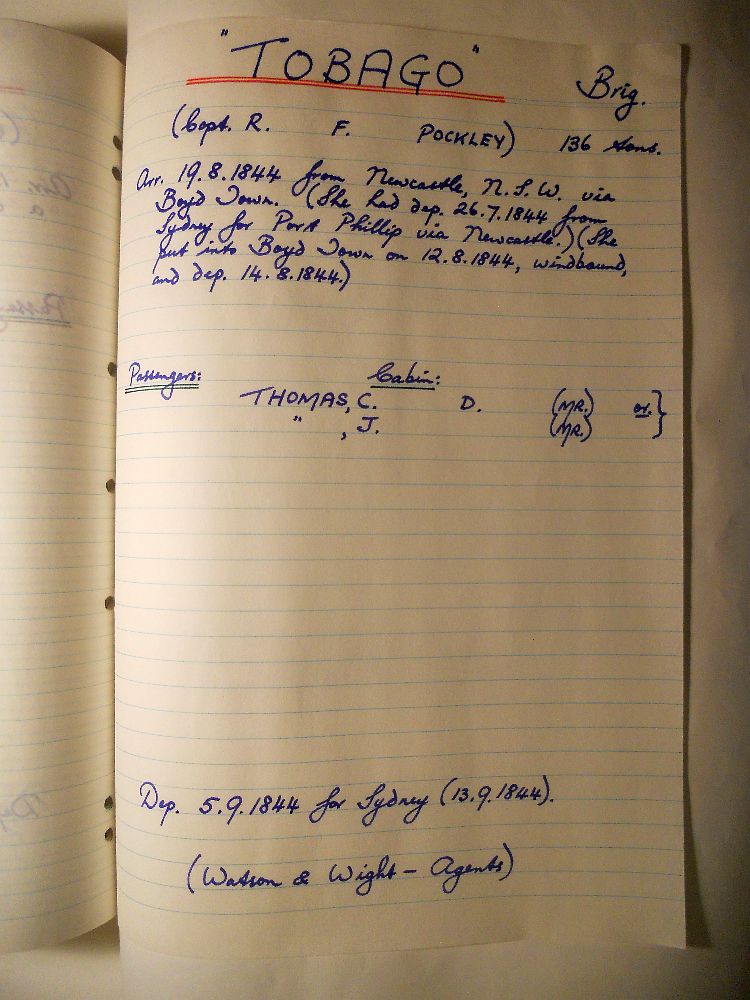 "TOBAGO" Brig.
(Capt. R. F. POCKLEY) 136 tons.
Arr. 19.8.1844 from Newcastle, N.S.W. via
Boyd Town. (She had dep. 26.7.1844 from
Sydney for Port Phillip via Newcastle.) (She
put into Boyd Town on 12.8.1844, windbound,
and dep. 14.8.1844.)
Passengers: Cabin:
THOMAS, C. D. (MR.) or. }
" , J. (MR.)
Dep. 5.9.1844 for Sydney (13.9.1844).
(Watson & Wight - Agents)